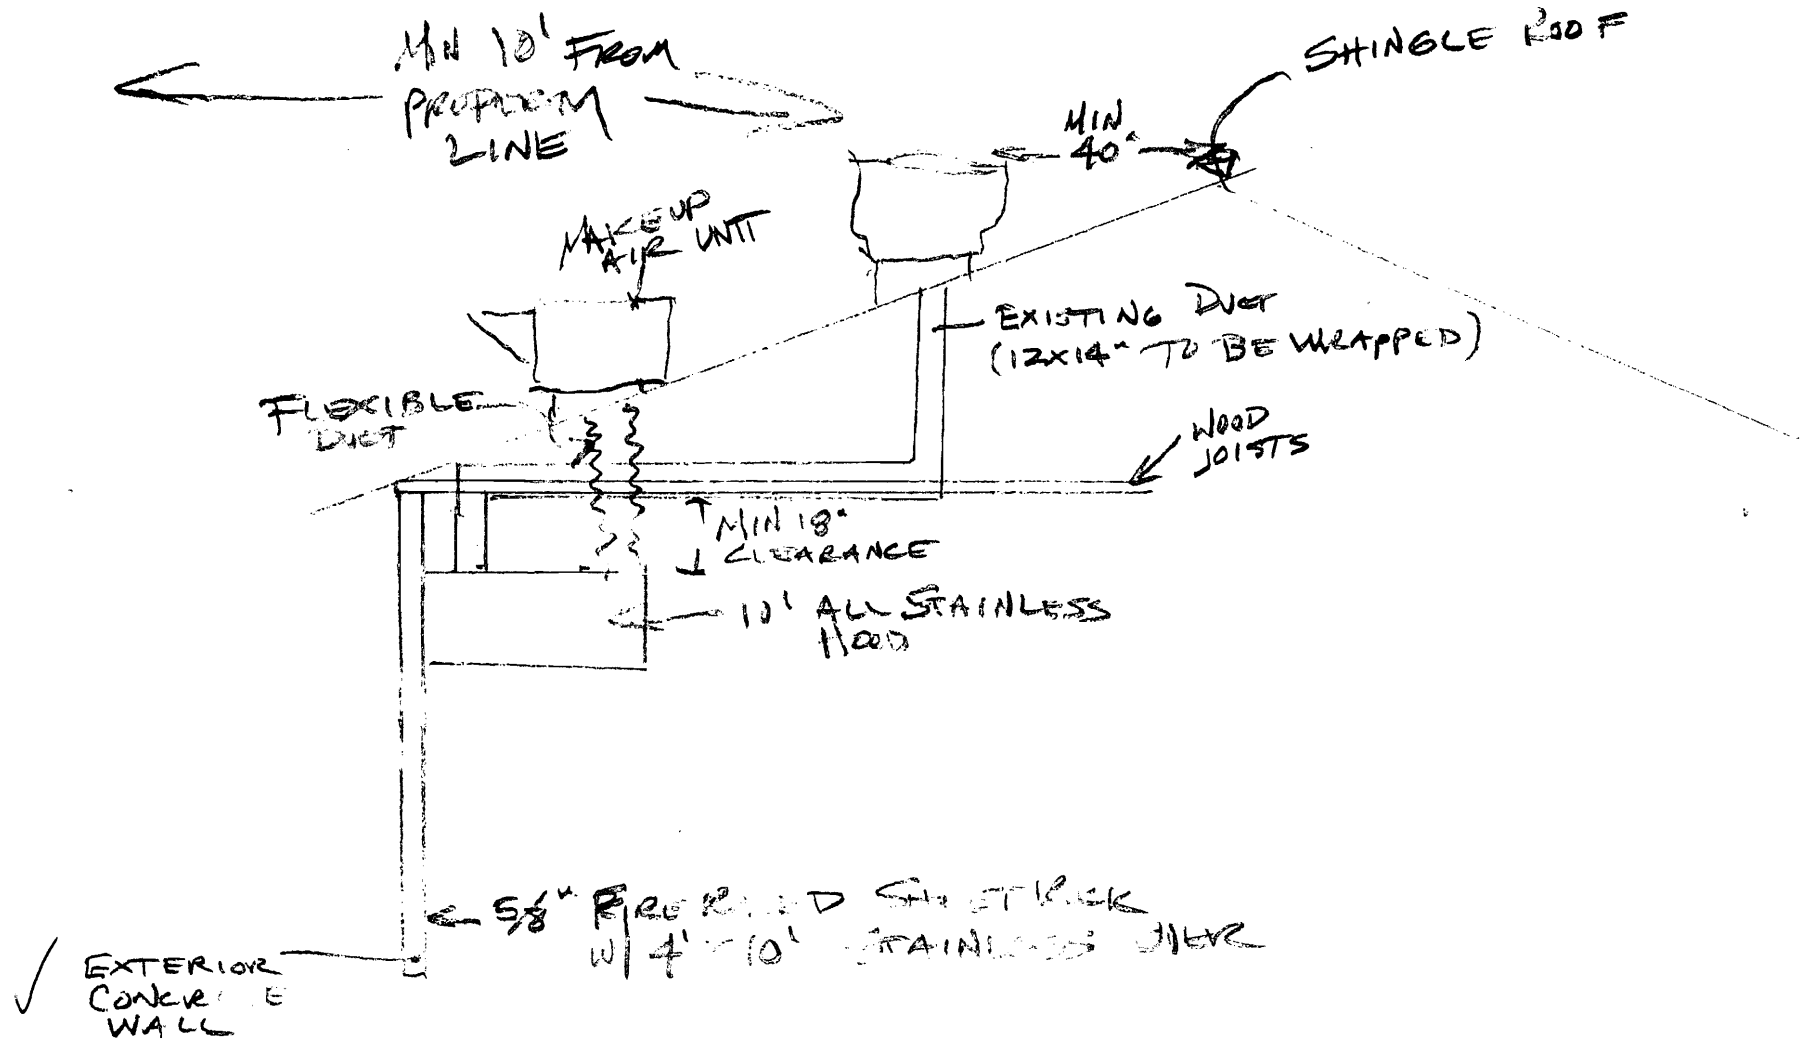 MIN 10' FROM
PROPERTY
LINE
SHINGLE ROOF
MIN
40"
MAKEUP
AIR UNIT
EXISTING DUCT
(12X14" TO BE WRAPPED)
FLEXIBLE
DUCT
WOOD
JOISTS
MIN 18"
CLEARANCE
10' ALL STAINLESS
HOOD
5/8" FIRE RATED SHEETROCK
W/ 4' 10' STAINLESS OVER
EXTERIOR
CONCRETE
WALL